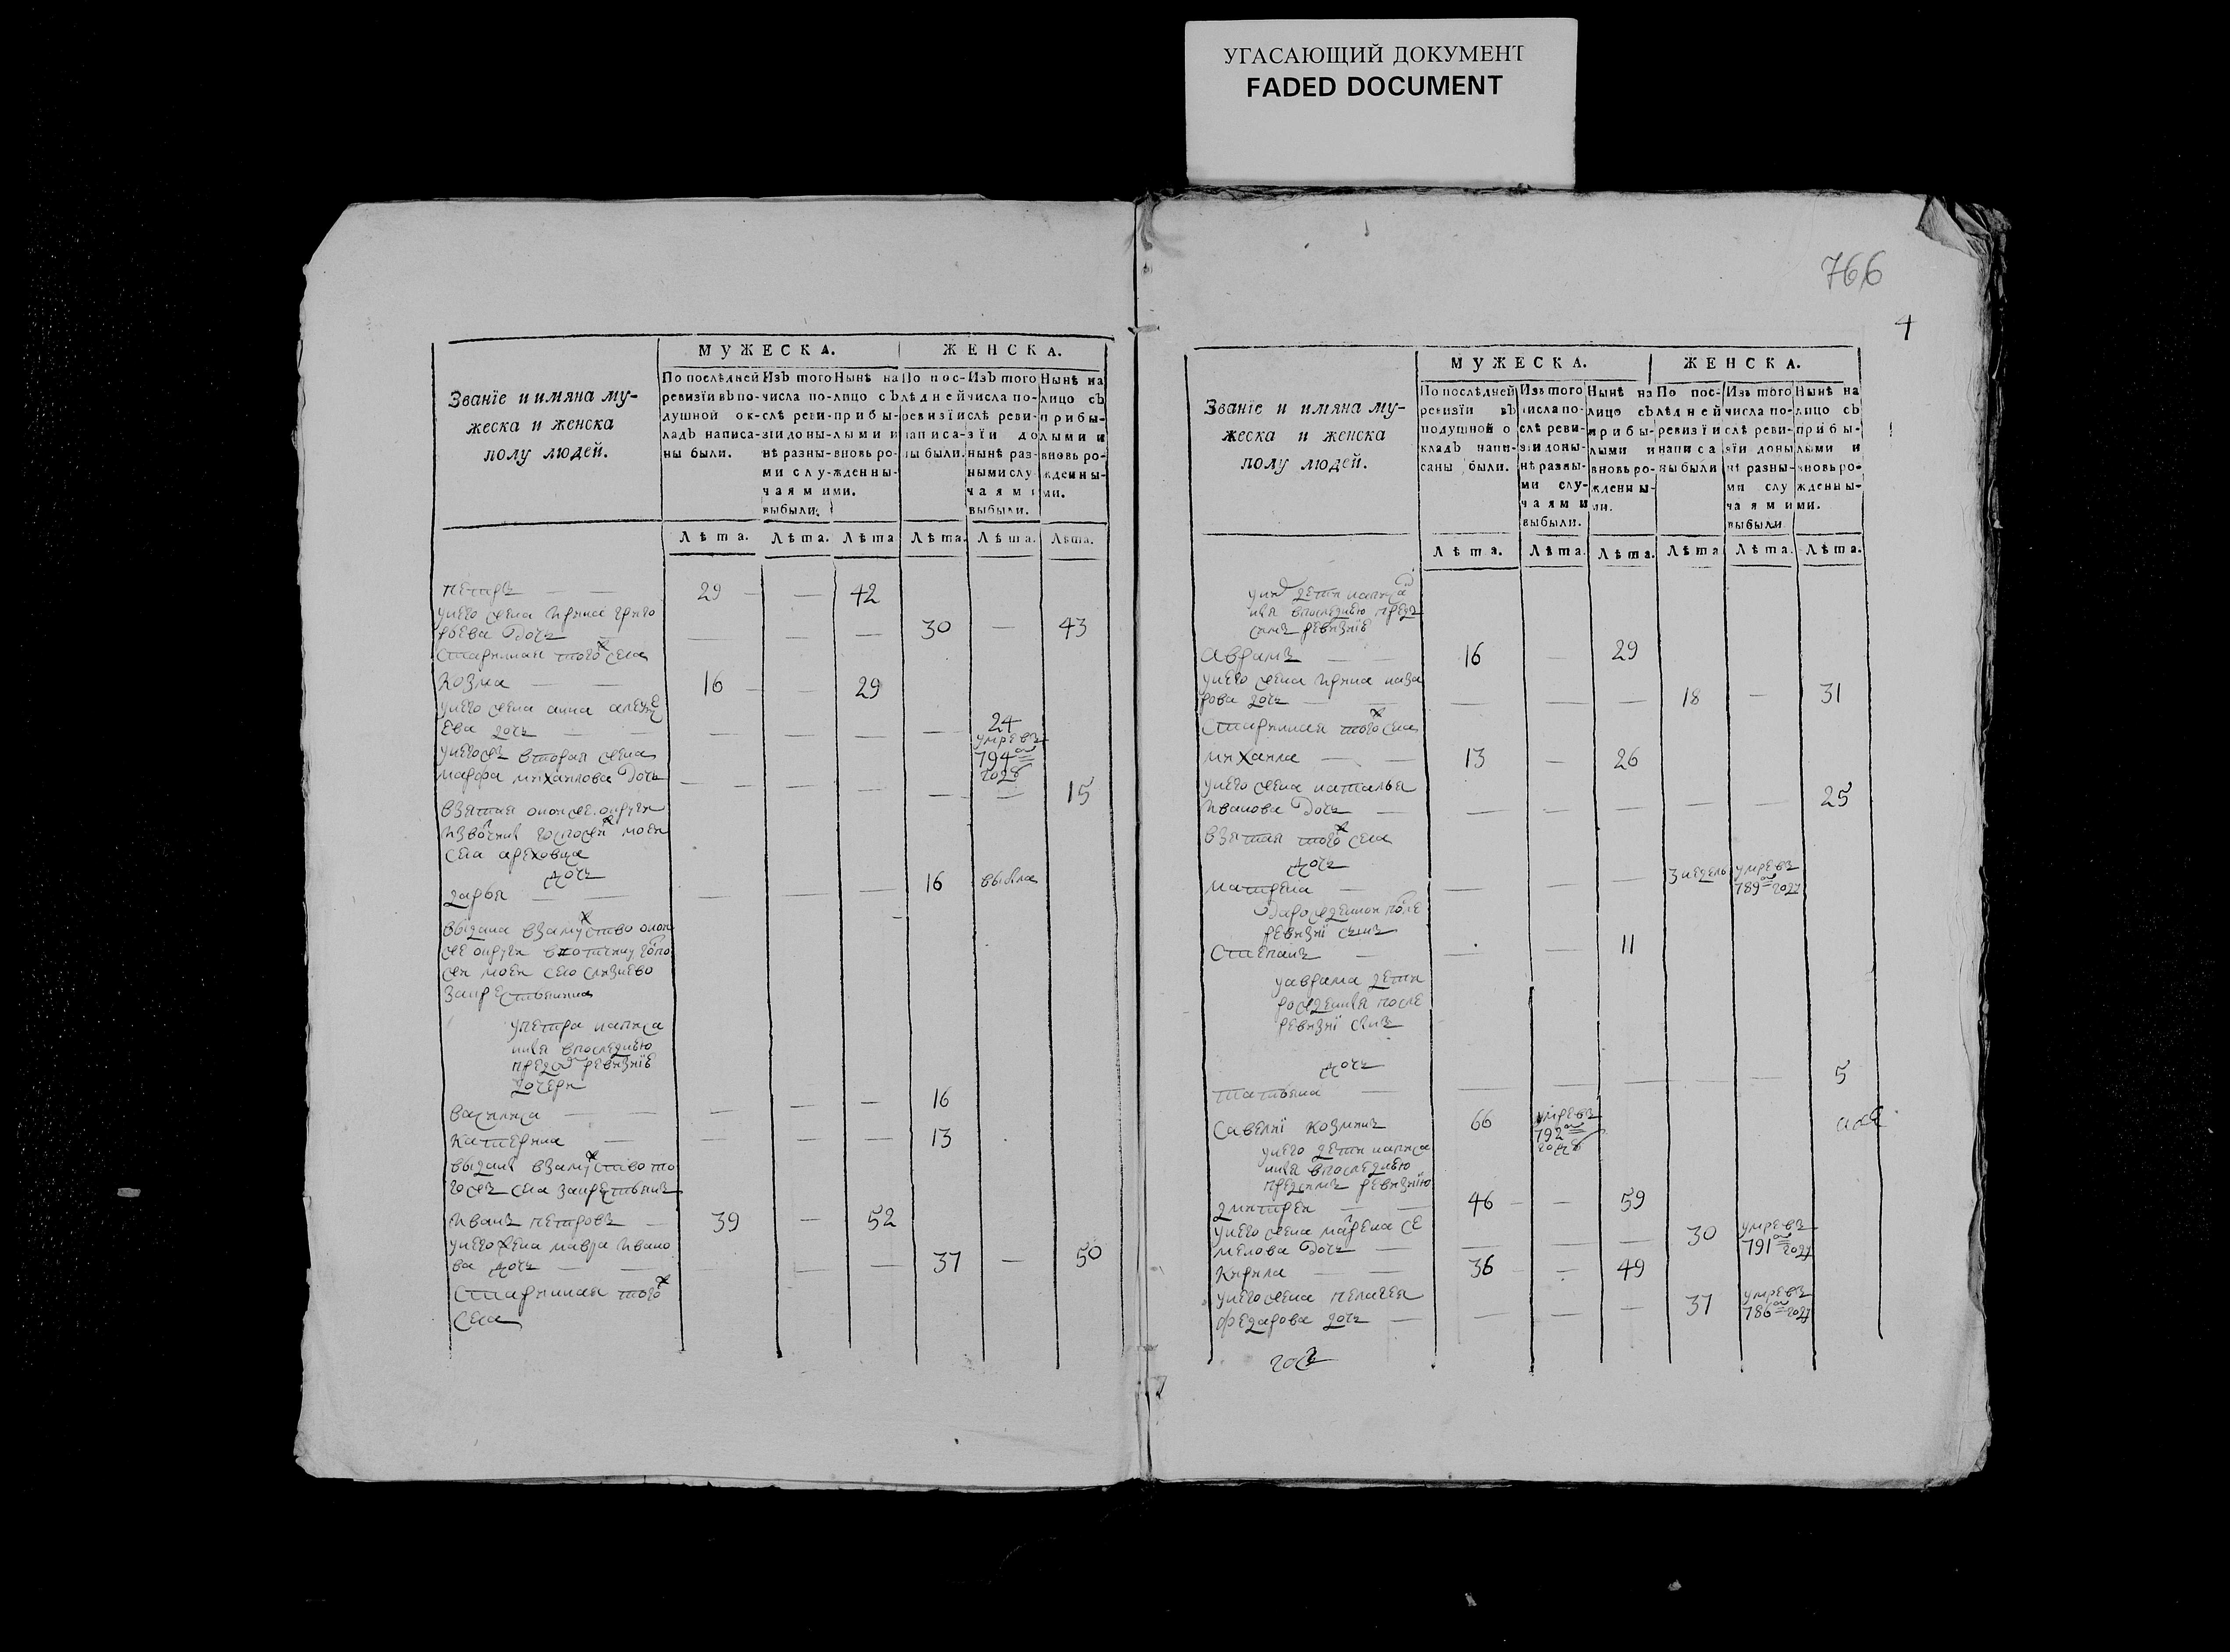 УГАСАЮЩИЙ ДОКУМЕНТ
FADED DOCUMENT
766
4
МУЖЕСКА. ЖЕНСКА.
Званїе и имяна му-
жеска и женска
полу людей.
По послѣдней ревизїи въ подушной окладъ написаны были.
Изъ того числа послѣ ревизїи до нынѣ разными случаями выбыли.
Нынѣ на лицо съ прибылыми и вновь рожденными.
По послѣдней ревизїи написаны были.
Изъ того числа послѣ ревизїи до нынѣ разными случаями выбыли.
Нынѣ на лицо съ прибылыми и вновь рожденными.
Лѣта. Лѣта. Лѣта Лѣта. Лѣта. Лѣта.
петръ — — 29 — — 42
унего жена ирина григо
рьева дочь — — — — 30 — 43
старинная того ж села
козма — — 16 — — 29
унего жена анна алексе
ева дочь — — — — — 24
умре въ
794м
году
унегожъ вторая жена
марфа михаилова дочь — — — — — 15
взятая
села ореховца
дочь
дарья — — — — — 16 выбыла
выдана взамужство
за крестьянина
упетра написа
ныя впоследнюю
пред ревизiю
дочери
василиса — — — — — 16
катерина — — — — 13
выданы взамужство то
гожъ села закрестьянъ
иванъ петровъ — 39 — 52
унего жена мавра ивано
ва дочь — — — — 37 — 50
старинная того ж
села
МУЖЕСКА. ЖЕНСКА.
Званїе и имяна му-
жеска и женска
полу людей.
По послѣдней ревизїи въ подушной окладъ написаны были.
Изъ того числа послѣ ревизїи до нынѣ разными случаями выбыли.
Нынѣ на лицо съ прибылыми и вновь рожденными.
По послѣдней ревизїи написаны были
Изъ того числа послѣ ревизїи до нынѣ разными случаями выбыли
Нынѣ на лицо съ прибылыми и вновь рожденными.
Лѣта. Лѣта. Лѣта. Лѣта Лѣта. Лѣта.
дети написа
ныя впоследнюю пред
симъ ревизiю
аврамъ — — 16 — 29
унего жена ирина наза
рова дочь — — — — 18 — 31
старинная того ж села
михаила — — 13 — 26
унего жена наталья
иванова дочь — — — — — — 25
взятая того ж села
дочь
матрена — — — — 3 недель умре въ
789м году
рожденной после
ревизїи сынъ
степанъ — — — 11
уаврама дети
рожденныя после
ревизїи сынъ
дочь
татьяна — — — — — — 5
савелиї козминъ 66 умре въ
792м
году
унего дети написа
ныя впоследнюю
предсимъ ревизїю
дмитреи — — 46 — — 59
унего жена матрена се
менова дочь — — — — 30 умре въ
791м году
кирила — — 36 — — 49
унего жена пелагея
федарова дочь — — — — 37 умре въ
786м году